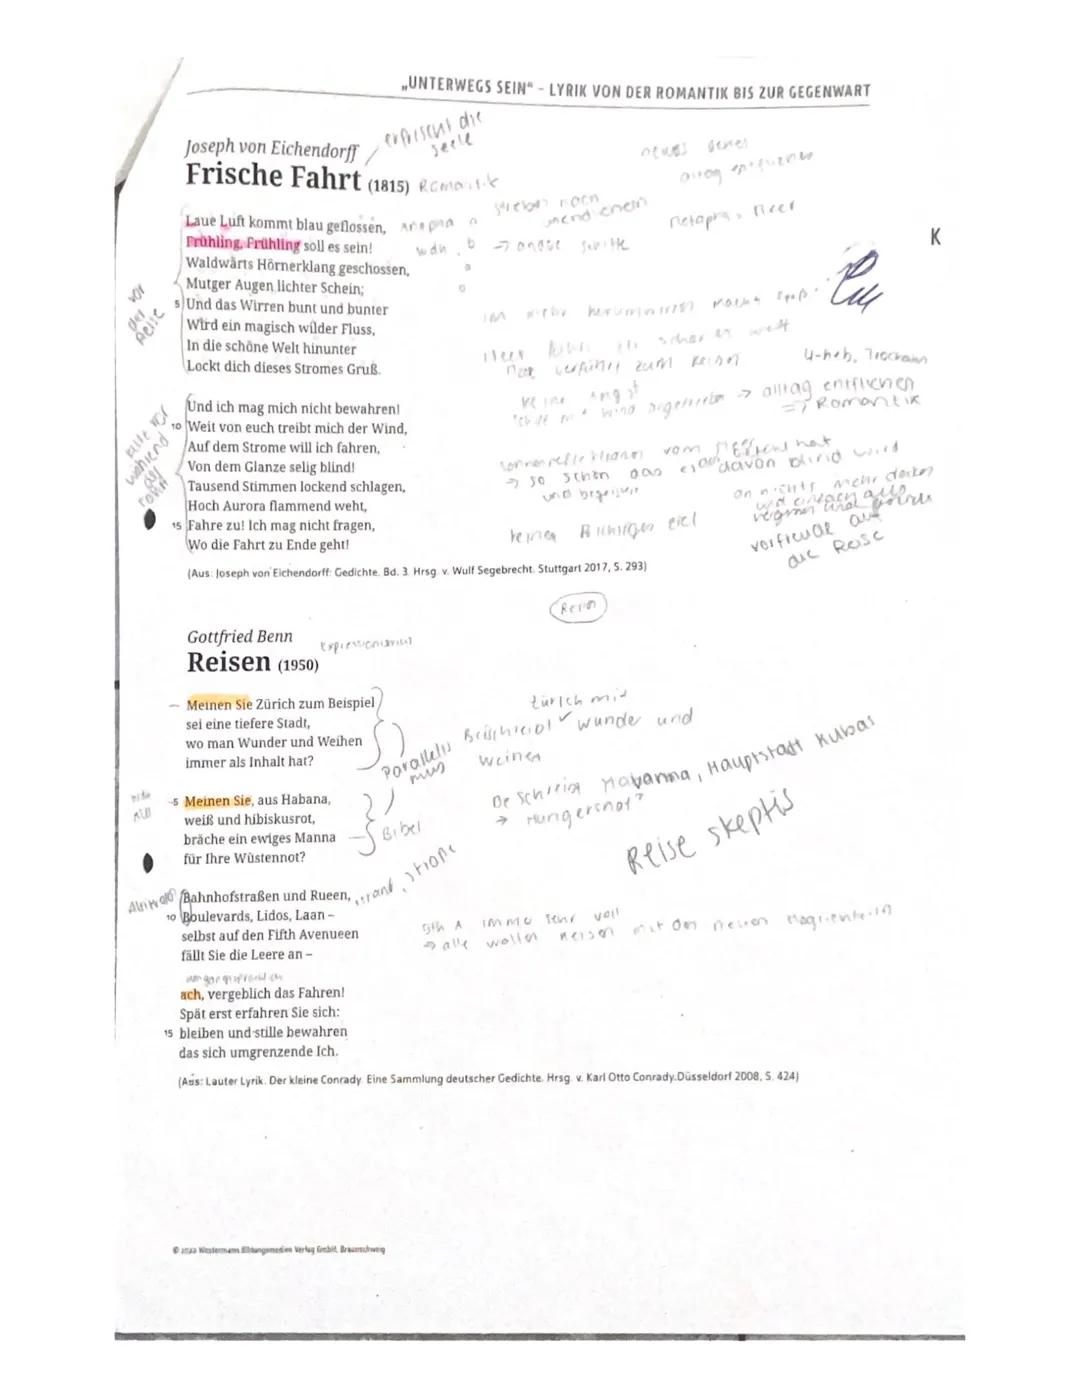 „UNTERWEGS SEIN“ – LYRIK VON DER ROMANTIK BIS ZUR GEGENWART
K
Joseph von Eichendorff
erfrischt die
seele
Frische Fahrt (1815) Romantik
neues
Laue Luft kommt blau geflossen,
Frühling, Frühling soll es sein!
Waldwärts Hörnerklang geschossen,
Mutger Augen lichter Schein;
5 Und das Wirren bunt und bunter
Wird ein magisch wilder Fluss,
In die schöne Welt hinunter
Lockt dich dieses Stromes Gruß.
vor
der
Reise
streben nach
Meer
macht spaß
verführt zum Reisen
4-heb. Trochäus
Und ich mag mich nicht bewahren!
10 Weit von euch treibt mich der Wind,
Auf dem Strome will ich fahren,
Von dem Glanze selig blind!
Tausend Stimmen lockend schlagen,
Hoch Aurora flammend weht,
15 Fahre zu! Ich mag nicht fragen,
Wo die Fahrt zu Ende geht!
während
der
keine Angst
→ alltag entfliehen
=> Romantik
→ so schön das davon blind wird
an nichts mehr denken
und einfach alles
vorfreude auf
die Reise
(Aus: Joseph von Eichendorff: Gedichte. Bd. 3. Hrsg. v. Wulf Segebrecht. Stuttgart 2017, S. 293)
Reisen
Gottfried Benn
Expressionismus
Reisen (1950)
– Meinen Sie Zürich zum Beispiel
sei eine tiefere Stadt,
wo man Wunder und Weihen
immer als Inhalt hat?
Parallelis
mus
Zürich mit
Beschreibt wunder und
weihen
5 Meinen Sie, aus Habana,
weiß und hibiskusrot,
bräche ein ewiges Manna
für Ihre Wüstennot?
Bibel
Beschreibt Havanna, Hauptstadt Kubas
→ Hungersnot?
Reise skeptis
Bahnhofstraßen und Rueen,
10 Boulevards, Lidos, Laan –
selbst auf den Fifth Avenueen
fällt Sie die Leere an –
5th A immer sehr voll
→ alle wollen Reisen mit den neuen
umgangssprachlich
ach, vergeblich das Fahren!
Spät erst erfahren Sie sich:
15 bleiben und stille bewahren
das sich umgrenzende Ich.
(Aus: Lauter Lyrik. Der kleine Conrady. Eine Sammlung deutscher Gedichte. Hrsg. v. Karl Otto Conrady.Düsseldorf 2008, S. 424)
© 2022 Westermann Bildungsmedien Verlag GmbH, Braunschweig